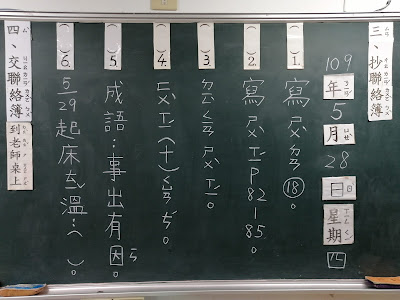 三、抄聯絡簿
109年5月28日星期四
(1). 寫 ⑱。
(2). 寫 ㄕㄨ ㄒㄧ P82-85。
(3). ㄕㄨ ㄒㄧ。
(4). ㄒㄧ(十)
(5). 成語:事出有因。
(6). 5/29起床 溫:( )。
四、交聯絡簿
到老師桌上